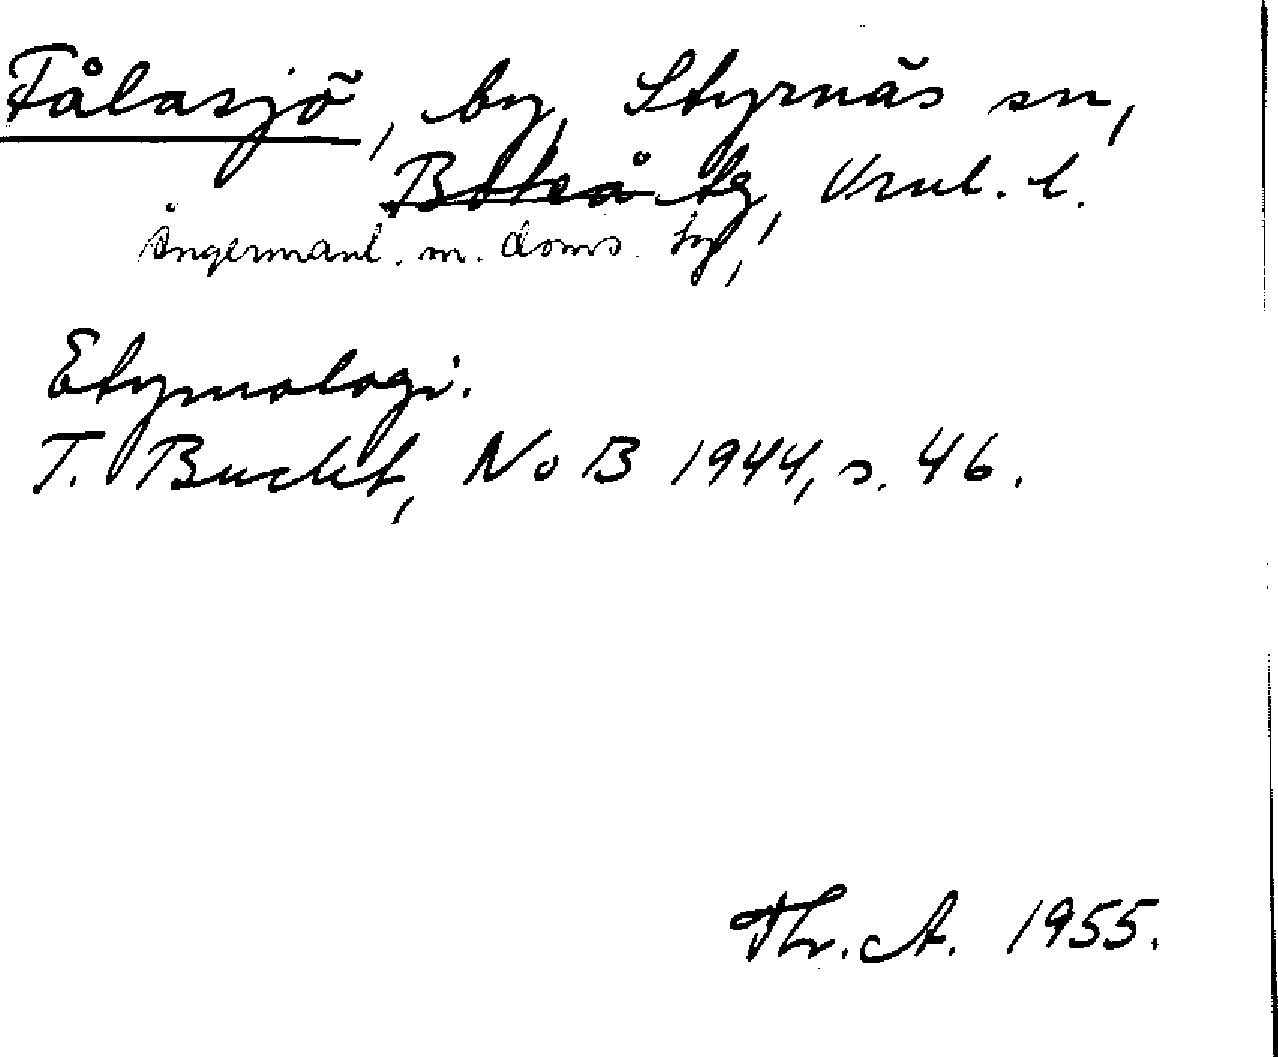 Fålasjö, by, Styrnäs sn,
Boteå tg, Vnl. l.
Ångermanl. m. doms. tg,
Etymologi.
T. Bucht, NoB 1944, s. 46.
Thr. A. 1955.